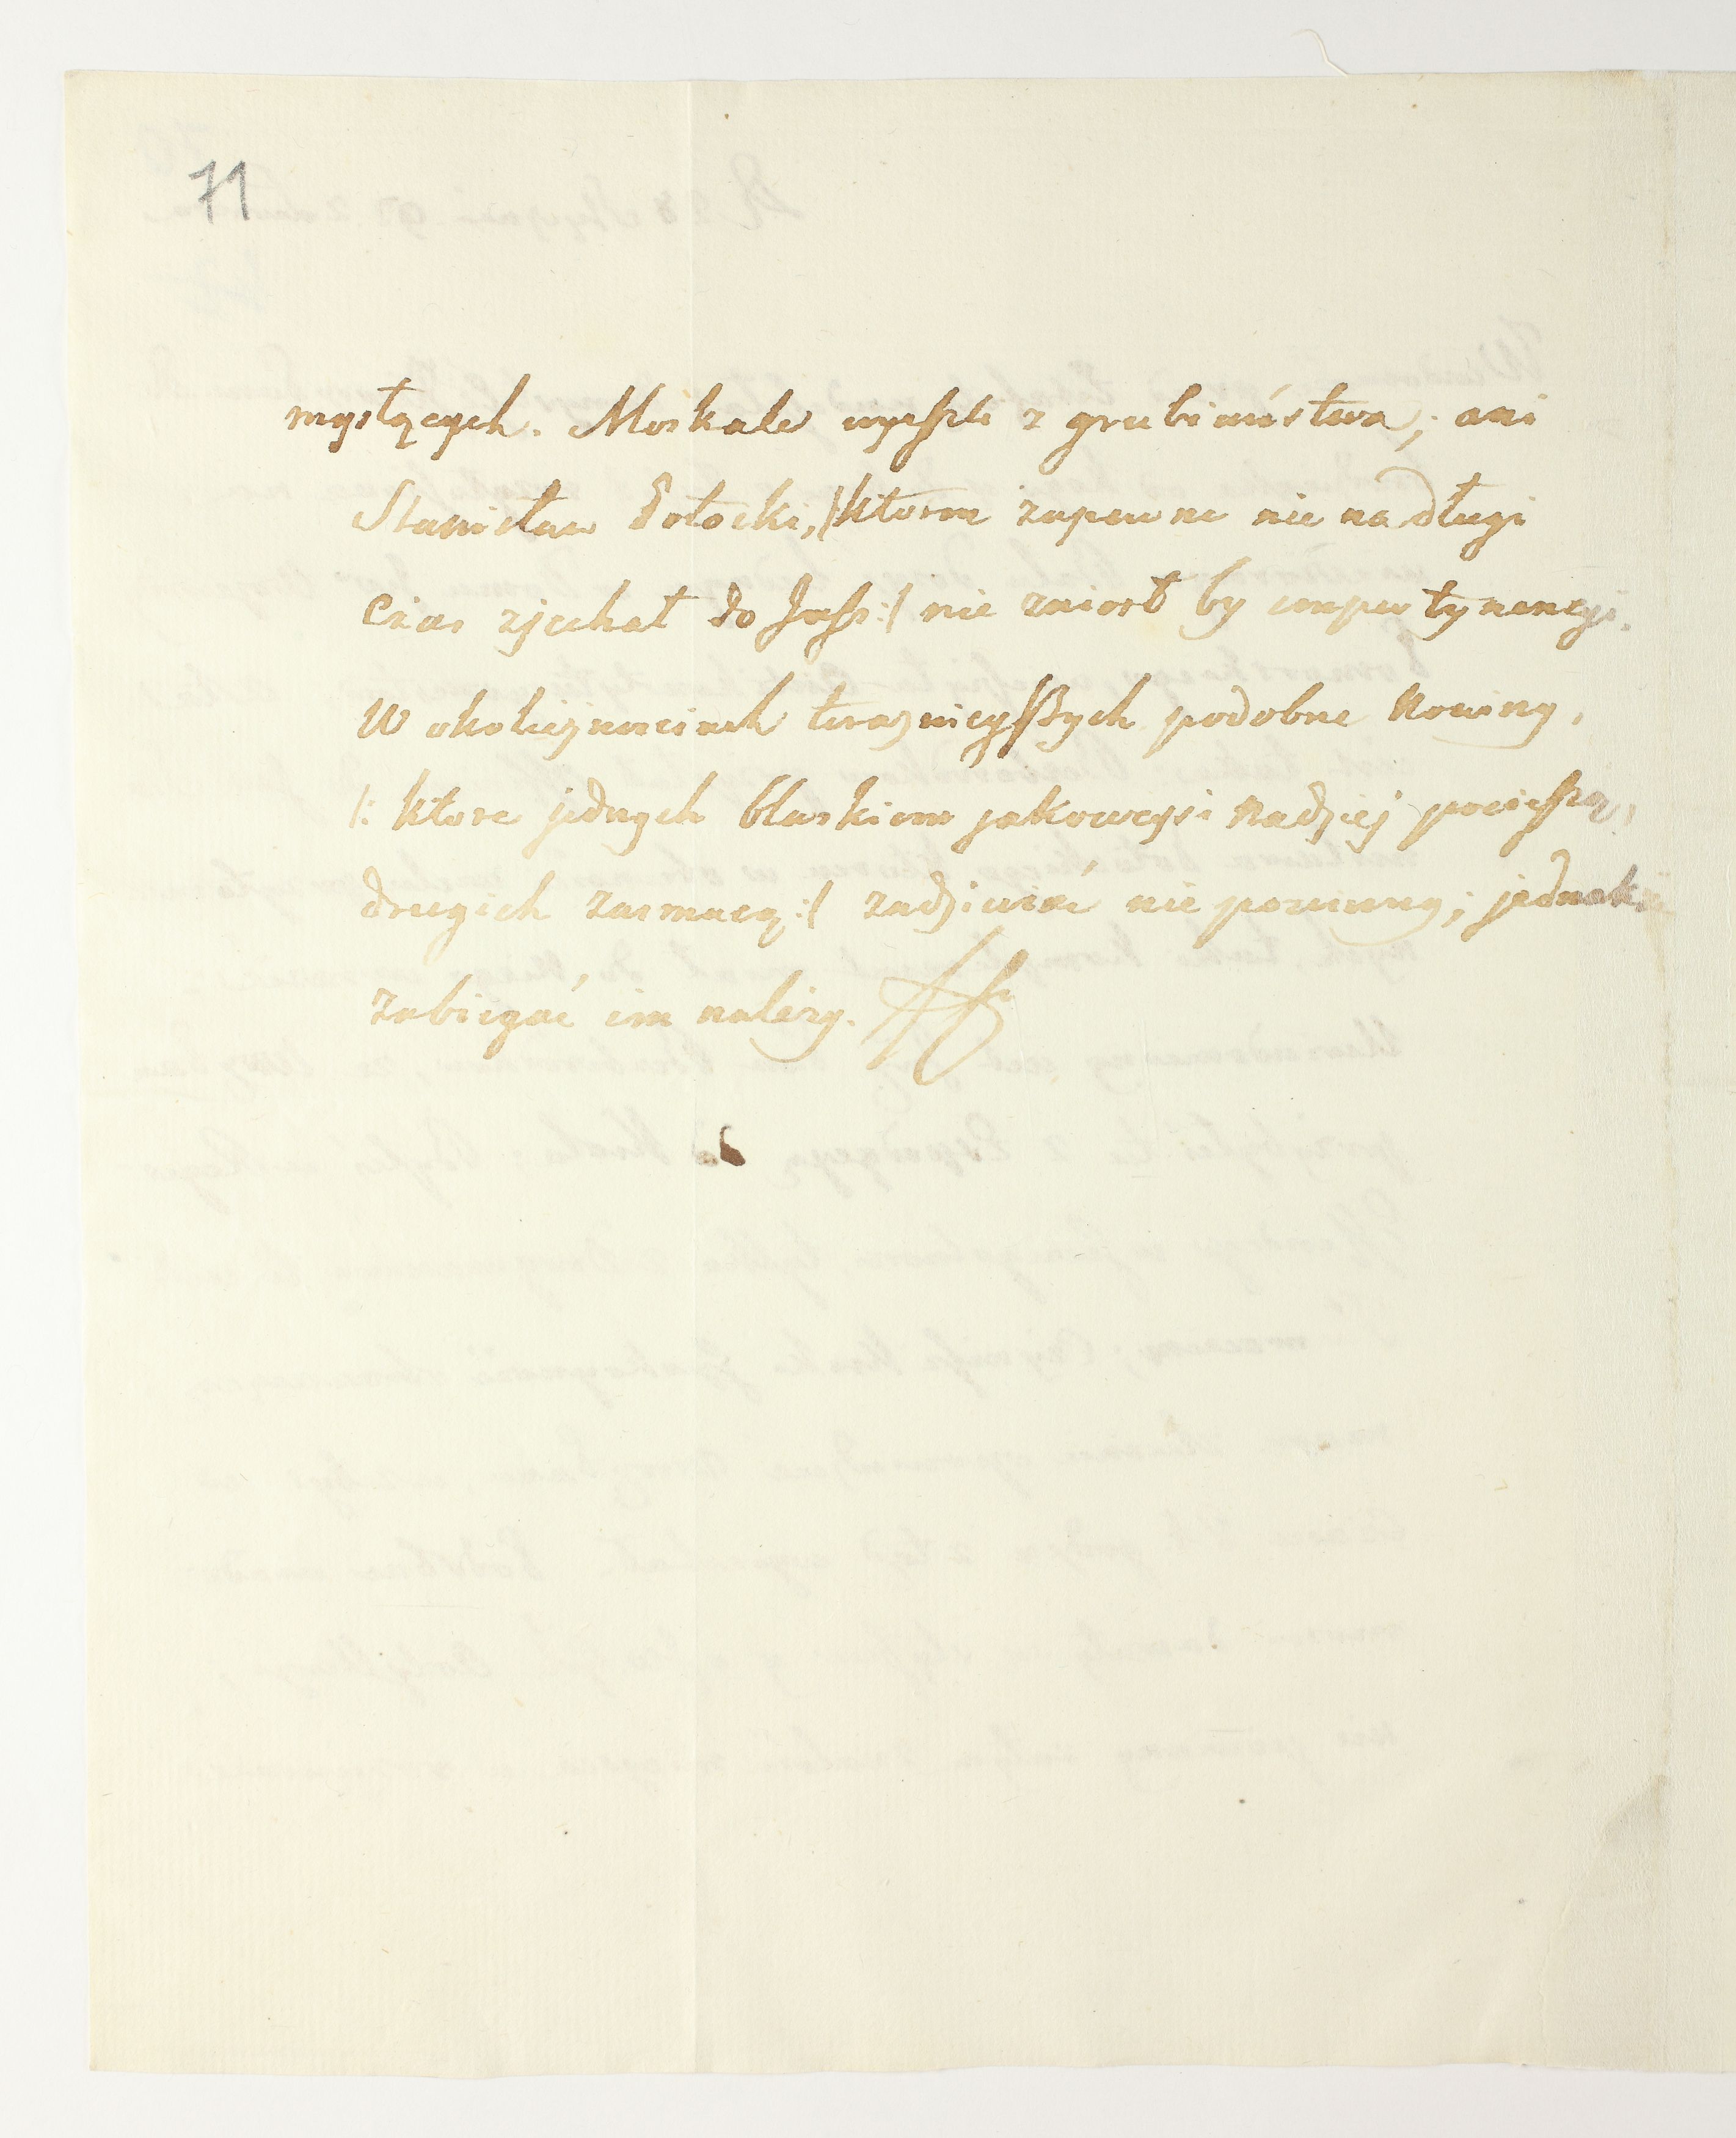 71
myslących. Moskale wyszli z grubiaństwa; ani
Stanisław Potocki, /: ktoren zapewne nie na długi
Czas zjechał do Jass :/ nie zniosł by impertynencyi.
W okolicznosciach teraznieyszych podobne Nowiny,
/: ktore jednych blaskiem jakoweysi Nadziej pocieszą,
drugich zasmucą :/ zadziwiać nie powinny; jednakże
zabiegać im należy.